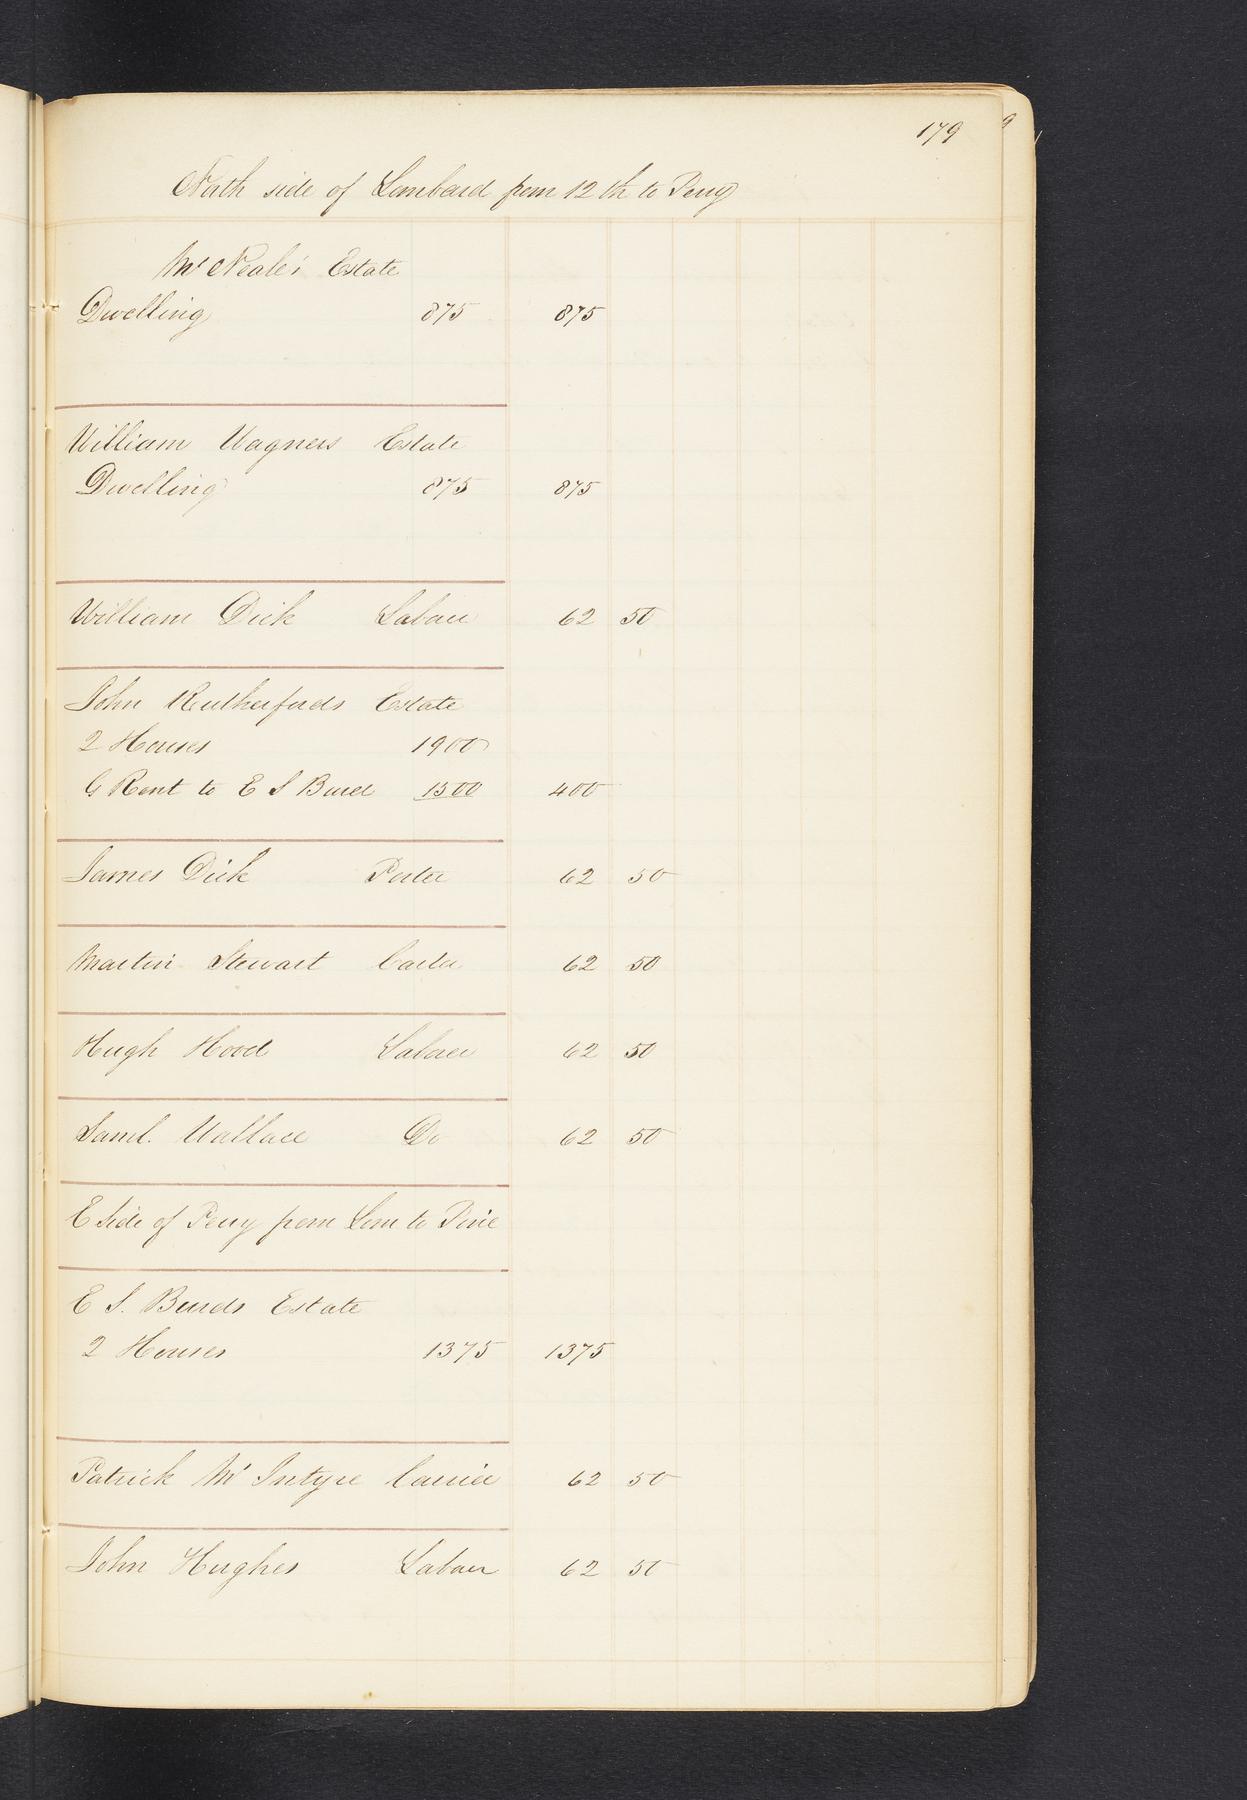 179
North side of Lombard from 12th to Perry
Mc Neale's Estate
Dwelling 875 875
William Wagners Estate
Dwelling 875 875
William Dick Laborer 62 50
John Rutherfords Estate
2 Houses 1900
G Rent to E S Burd 1500 400
James Dick Porter 62 50
Martin Stewart Carter 62 50
Hugh Hood Laborer 62 50
Saml. Wallace Do 62 50
E Side of Perry from Lom to Pine
E S. Burds Estate
2 Houses 1375 1375
Patrick Mc Intyre Carrier 62 50
John Hughes Laborer 62 50